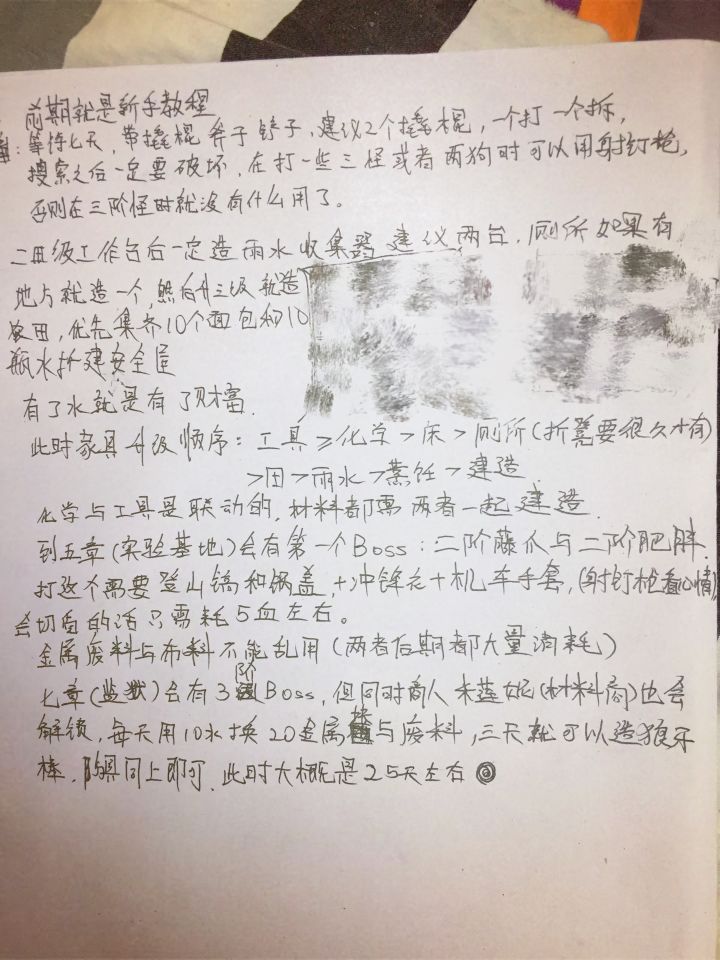 前期就是新手教程
等待七天，带撬棍 斧子 铲子，建议2个撬棍，一个打 一个拆，
搜索之后一定要破坏，在打一些三怪或者两狗时可以用射钉枪，
否则在三阶怪时就没有什么用了。
二级工作台后一定造雨水收集器 建议两台，厕所如果有
地方就造一个，然后升三级就造
农田，优先集齐10个面包和10
瓶水 建安全屋
有了水就是有了财富.
此时家具升级顺序：工具≥化学>床>厕所(折凳要很久才有)
>田>雨水>烹饪>建造
化学与工具是联动的，材料都需两者一起建造.
到五章(实验基地)会有第一个Boss：二阶藤爪与二阶肥胖.
打这个需要登山镐和锅盖，+冲锋衣+机车手套，(射钉枪看心情)
会切盾的话只需耗5血左右。
金属废料与布料不能乱用(两者后期都大量消耗)
七章(监狱)会有3阶Boss，但同时商人朱莲妮(材料商)也会
解锁，每天用10水换20金属 与废料，三天就可以造狼牙
棒，防具同上即可，此时大概是25天左右